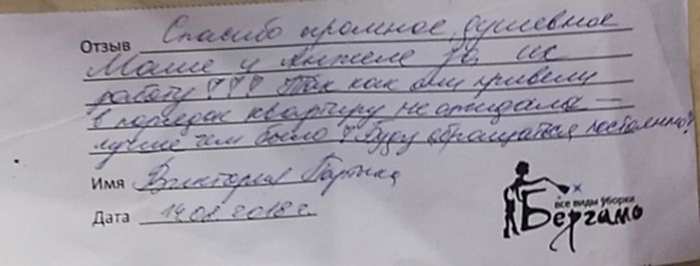 Отзыв Спасибо огромное, душевное
Маше и Анжеле за их
работу!!! Так как они привели
в порядок квартиру не ожидала –
лучше чем было! Буду обращаться постоянно!
Имя Виктория
Дата 14.01.2018 г.
все виды уборки
Бергамо